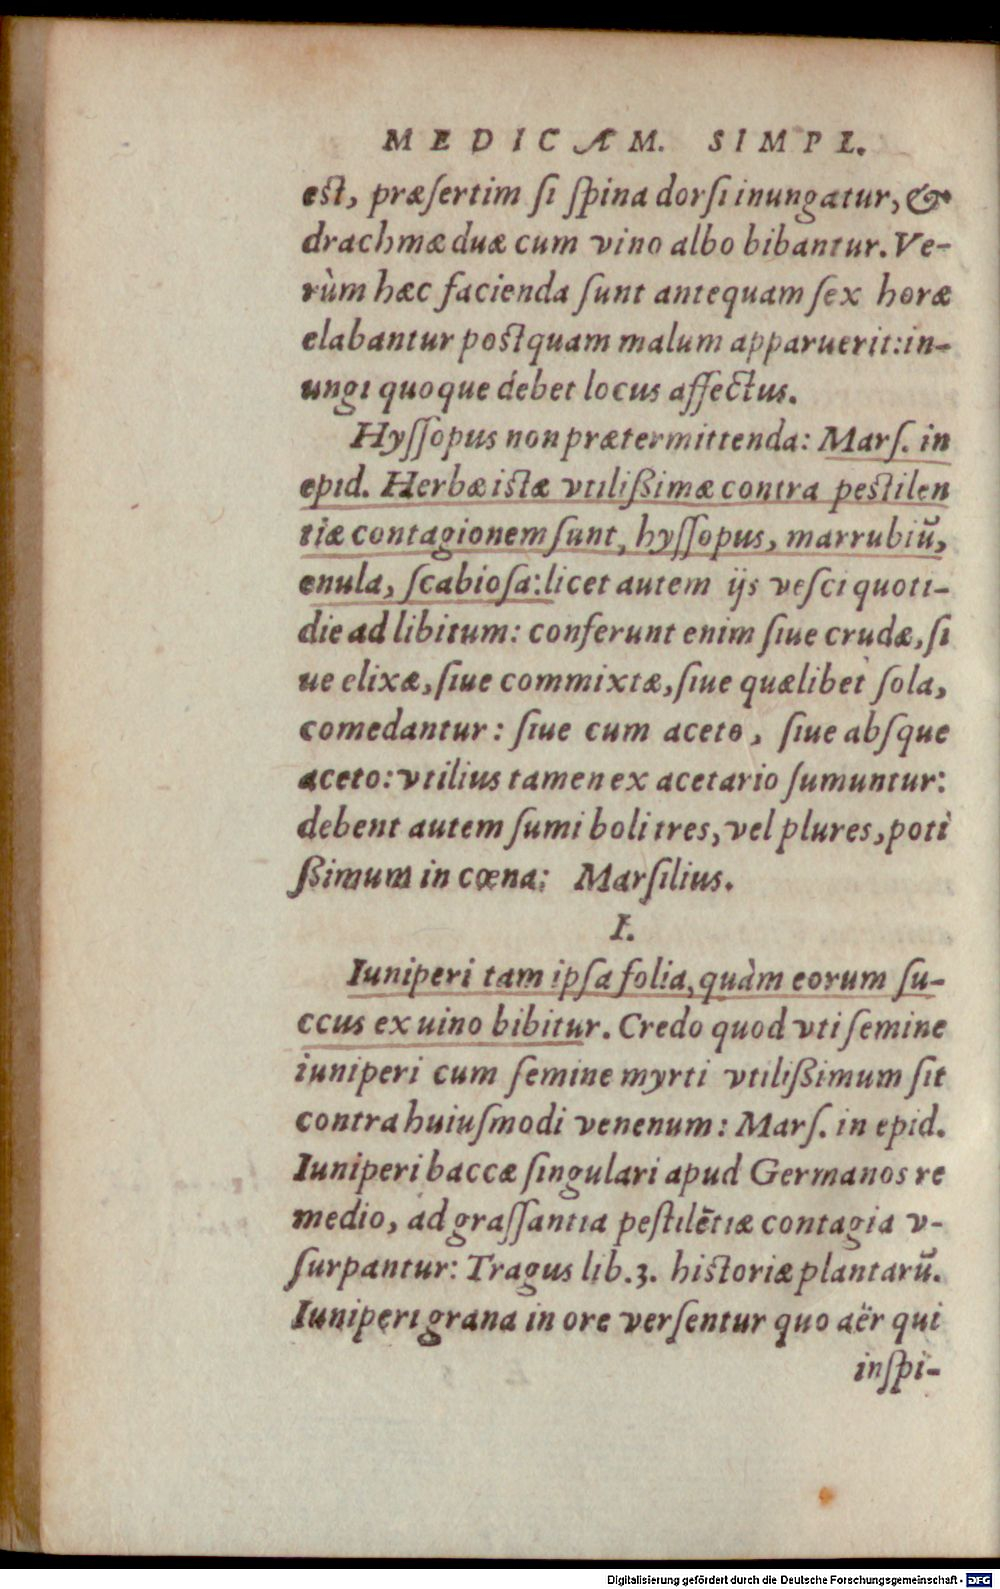 MEDICAM. SIMPL.
est, præſertim ſi ſpina dorſi inungatur, &
drachmæ duæ cum vino albo bibantur. Ve-
rùm hæc facienda ſunt antequam ſex horæ
elabantur poſtquam malum apparuerit: in-
ungi quoque debet locus affectus.
Hyſſopus non prætermittenda: Marſ. in
epid. Herbæ iſtæ vtilißimæ contra peſtilen
tiæ contagionem ſunt, hyſſopus, marrubiū,
enula, ſcabioſa: licet autem ijs veſci quoti-
die ad libitum: conferunt enim ſiue crudæ, ſi
ue elixæ, ſiue commixtæ, ſiue quælibet ſola,
comedantur: ſiue cum aceto, ſiue abſque
aceto: vtilius tamen ex acetario ſumuntur:
debent autem ſumi boli tres, vel plures, poti
ßimum in cœna: Marſilius.
I.
Iuniperi tam ipſa folia, quàm eorum ſu-
ccus ex uino bibitur. Credo quod vti ſemine
iuniperi cum ſemine myrti vtilißimum ſit
contra huiuſmodi venenum: Marſ. in epid.
Iuniperi baccæ ſingulari apud Germanos re
medio, ad graſſantia peſtilētiæ contagia v-
ſurpantur: Tragus lib. 3. hiſtoriæ plantarū.
Iuniperi grana in ore verſentur quo aër qui
inſpi-
Digitalisierung gefördert durch die Deutsche Forschungsgemeinschaft - DFG